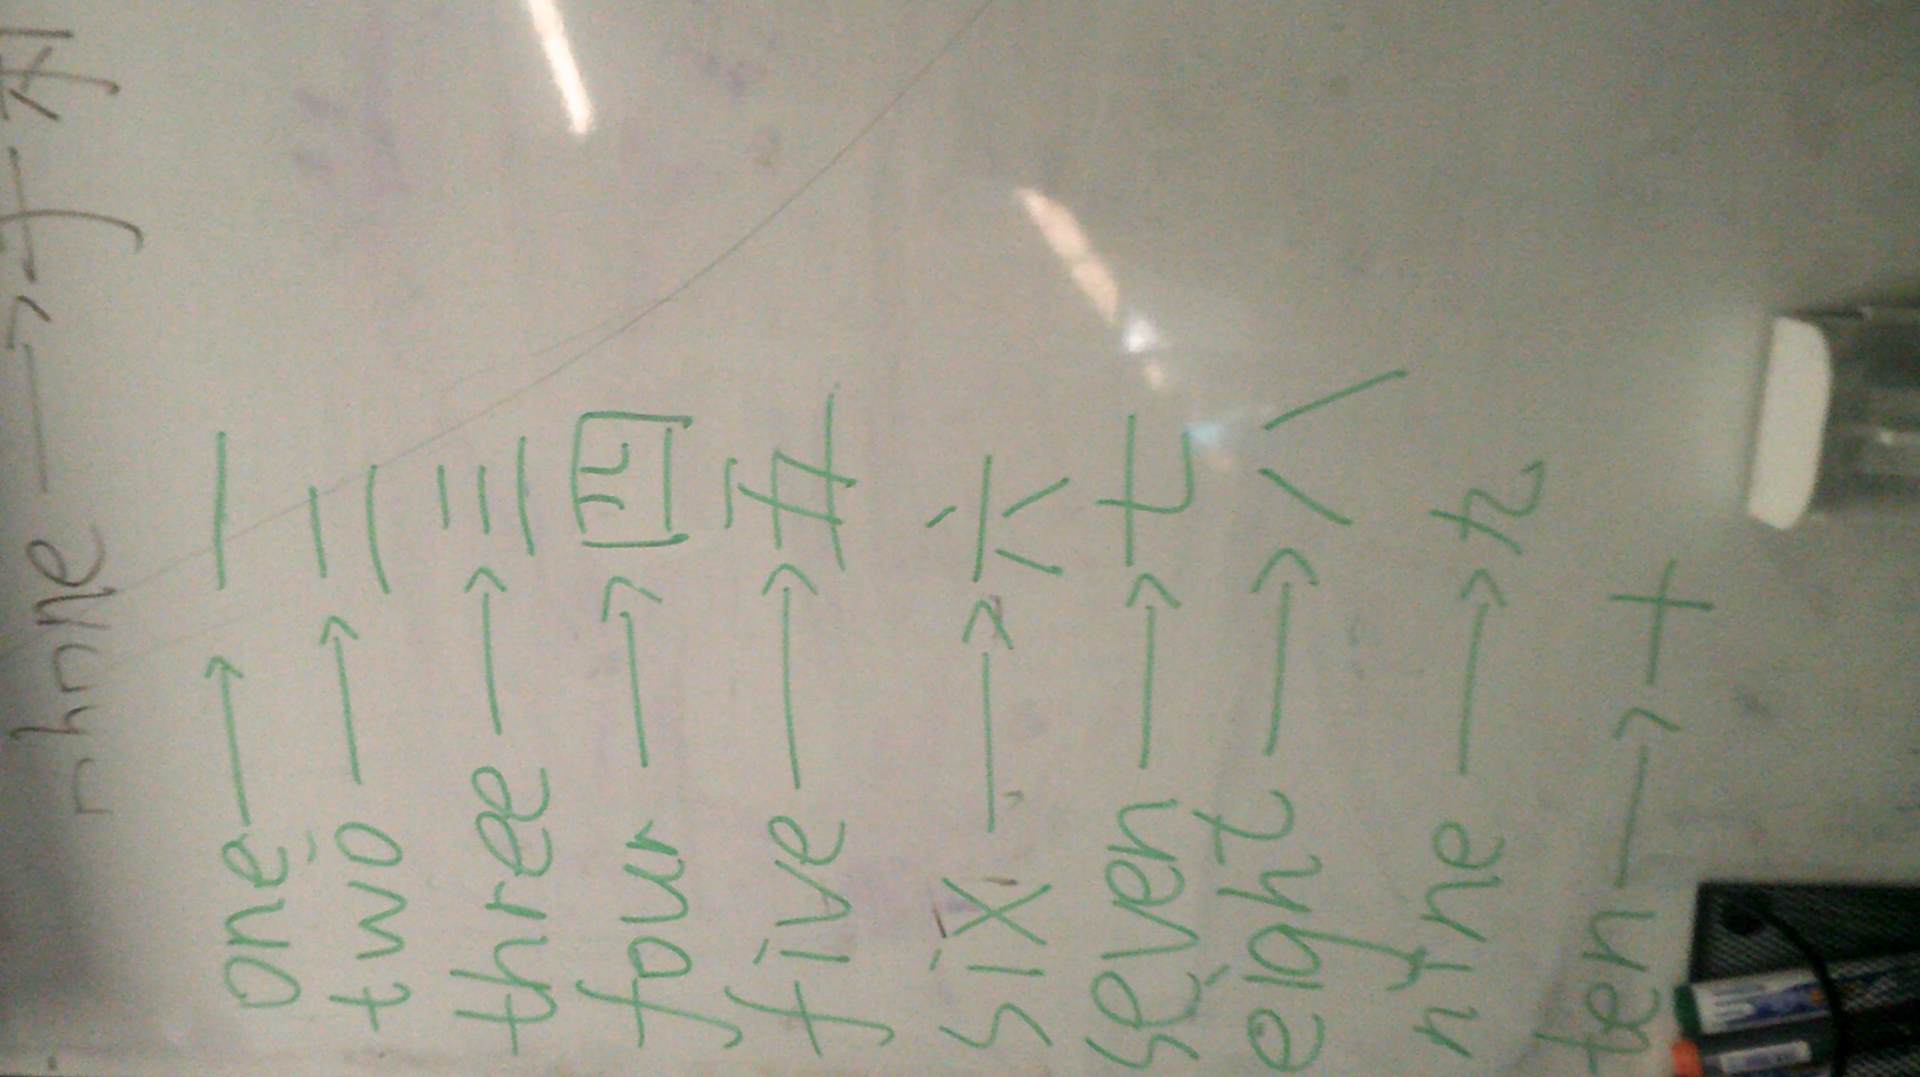 one → 一
two → 二
three → 三
four → 四
five → 五
six → 六
seven → 七
eight → 八
nine → 九
ten → 十